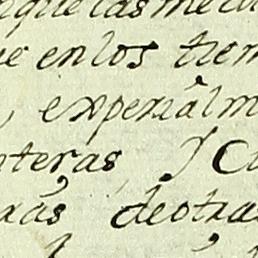 que las me
e en los tiem
experiàlm
teras, y C
xas de otra